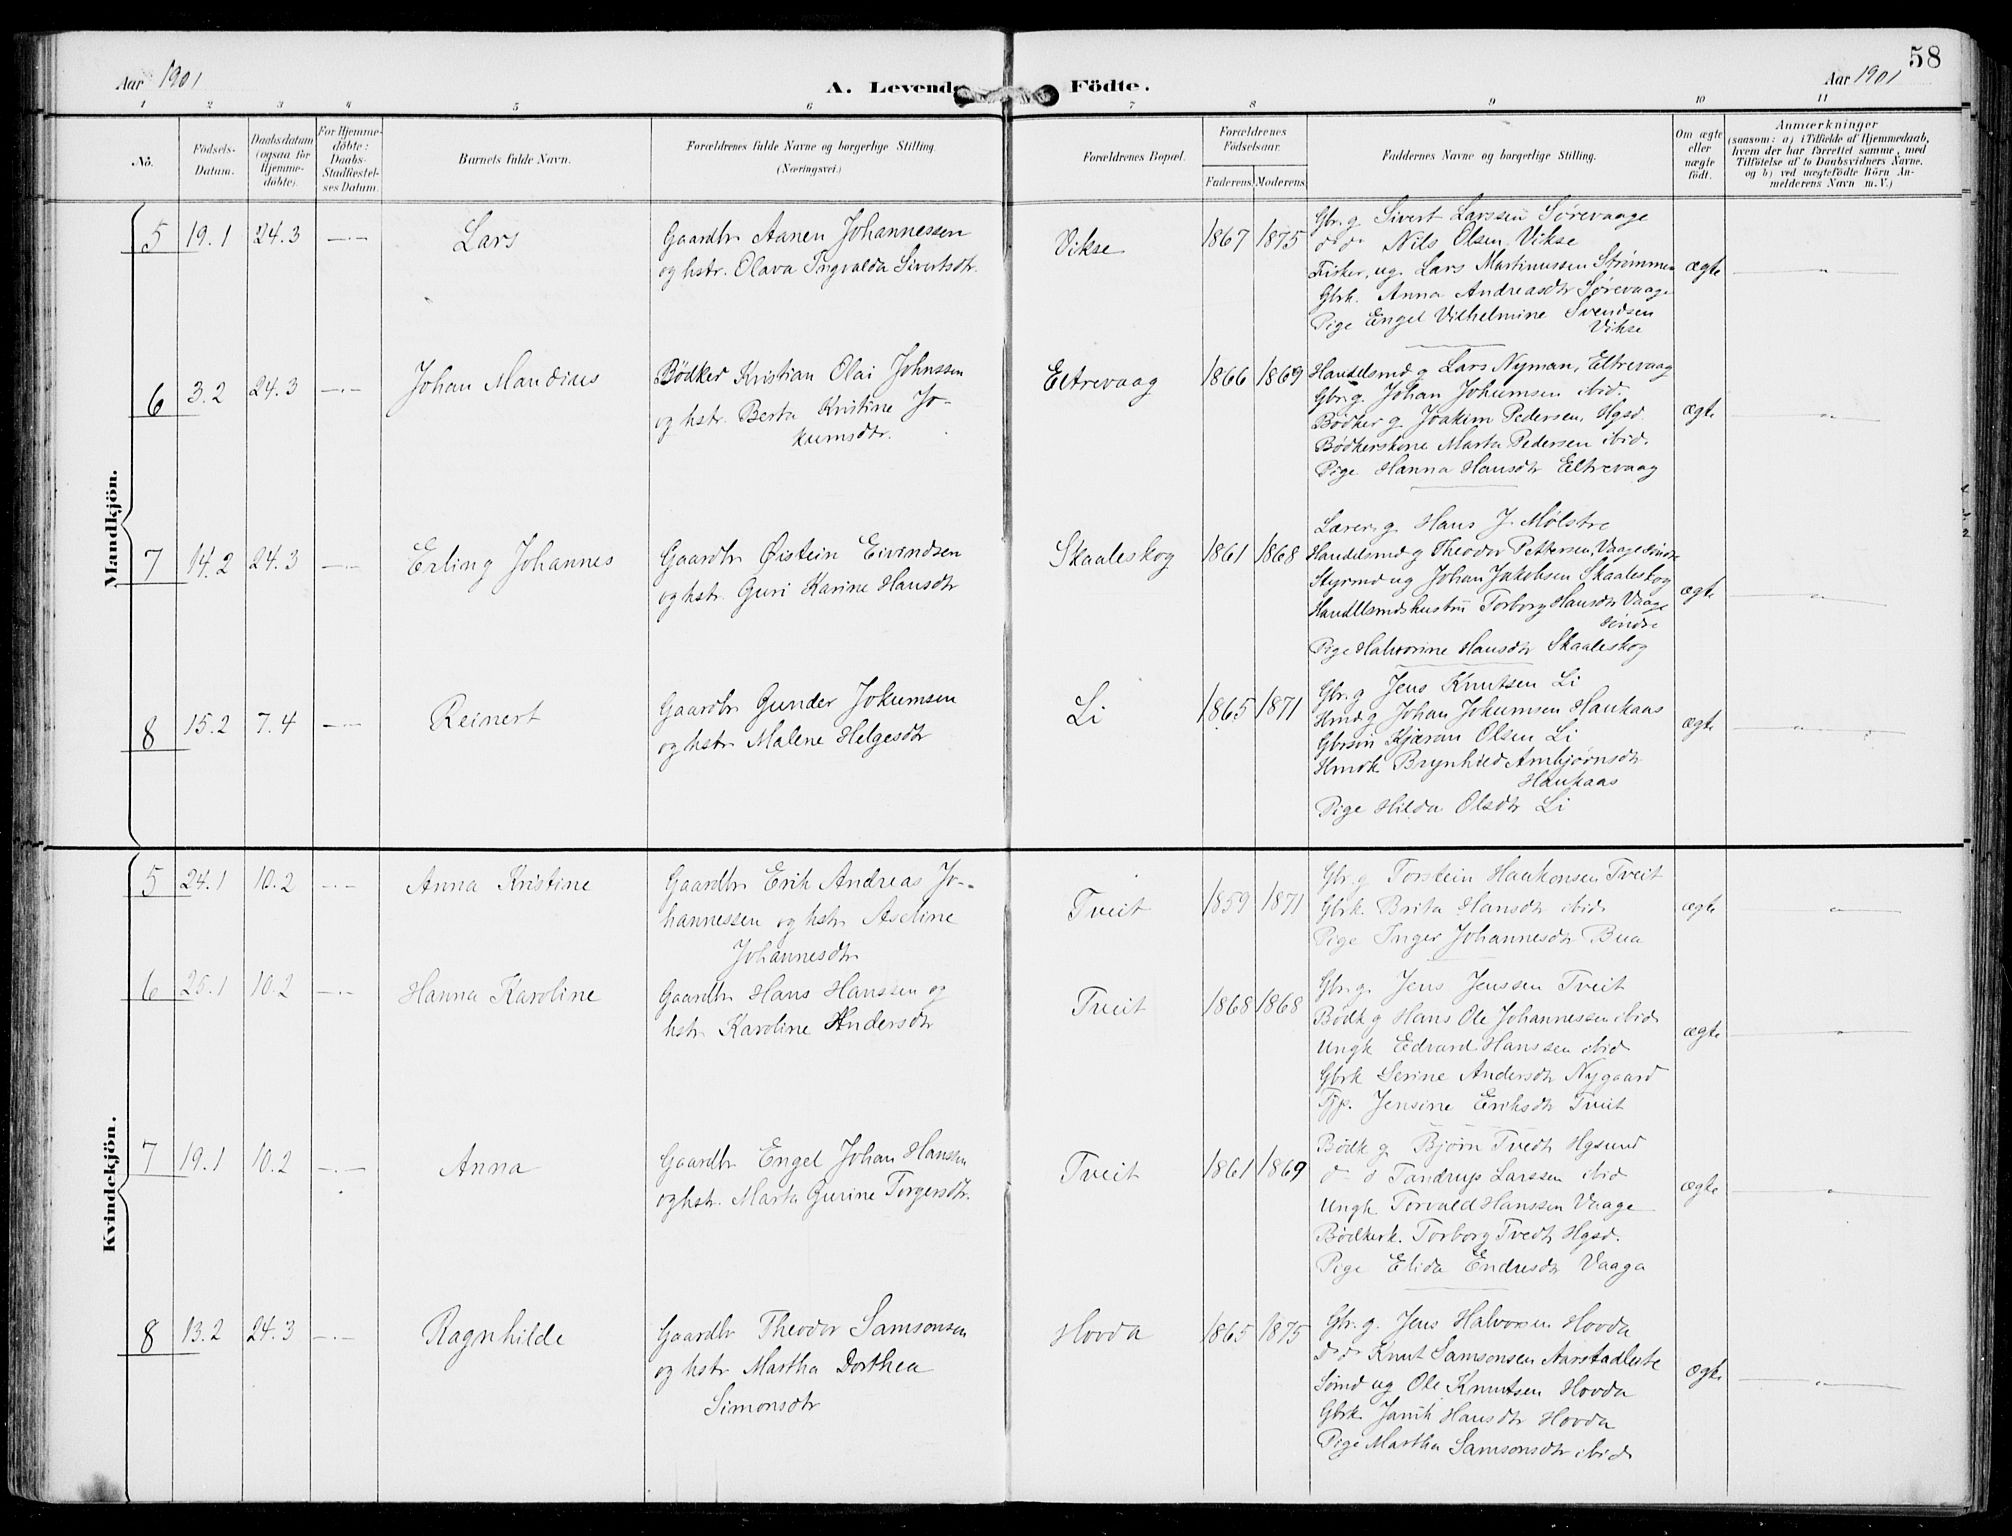 58
Aar 1901
A. Levende Födte.
Aar 1901
1 2 3 4 5 6 7 8 9 10 11
No.
Födsels-
Datum.
Daabsdatum
(ogsaa for
Hjemme-
döbte).
For Hjemme-
döbte:
Daabs-
Stadfæstel-
ses Datum.
Barnets fulde Navn.
Forældrenes fulde Navne og borgerlige Stilling.
(Næringsvei.)
Forældrenes Bopæl.
Forældrenes
Födselsaar.
Faderens Moderens
Faddernes Navne og borgerlige Stilling.
Om ægte
eller
uægte
födt.
Anmærkninger
(saasom: a) i Tilfælde af Hjemmedaab,
hvem der har forrettet samme, med
Tilföielse af to Daabsvidners Navne.
og b) ved uægtefödte Börn An-
melderens Navn m. V.)
Mandkjön.
5 19.1 24.3 —.— Lars
Gaardbr Aanen Johannessen
og hstr. Olava Ingvalda Sivertsdtr.
Vikse 1867 1875
Gbr. g. Sivert Larssen Sørevaage
do do Nils Olsen Vikse
Fisker, ug. Lars Martinussen Strømmen
Gbrk. Anna Andreasdtr Sørevaage
Pige Engel Vilhelmine Svendsen
Vikse
ægte —"—
6 3.2 24.3 —.— Johan Mandius
Bödker Kristian Olai Johnssen
og hstr. Berta Kristine Jo-
kumsdtr.
Eltrevaag 1866 1869
Handelsmd g Lars Nyman, Eltrevaag
Gbr. g. Johan Johumsen ibid.
Bødker g Joakim Pedersen, Hgsd.
Bödkerskone Marta Pedersen ibid.
Pige Hanna Hansdtr Eltrevaag
ægte —"—
7 14.2 24.3 —.— Erling Johannes
Gaardbr Øistein Eivindsen
og hstr. Guri Karine Hansdtr
Skaaleskog 1861 1868
Lærer g. Hans J. Mølstre
Handelsmd g Theodor Pettersen, Vaage søndre
Styrmd ug Johan Jakobsen Skaaleskog
Handelsmdshustru Torborg Hansdtr Vaage
søndre
Pige Halvorine Hansdtr Skaaleskog
ægte —"—
8 15.2 7.4 —.— Reinert
Gaardbr Gunder Jokumsen
og hstr Malene Helgesdtr
Li 1865 1871
Gbr. g Jens Knutsen Li
Hmd g Johan Johumsen Haukaas
Gbrsøn Kjæran Olsen Li
Hmdk Brynhild Ambjørnsdtr
Haukaas
Pige Hilda Olsdtr Li
ægte —"—
Kvindekjön.
5 24.1 10.2 —.— Anna Kristine
Gaardbr Erik Andreas Jo-
hannessen og hstr Aseline
Johannesdtr
Tveit 1859 1871
Gbr. g Torstein Haakonsen Tveit
Gbrk. Brita Hansdtr ibid
Pige Inger Johannesdtr Bua
ægte —"—
6 25.1 10.2 —.— Hanna Karoline
Gaardbr Hans Hanssen og
hstr Karoline Andersdtr
Tveit 1868 1868
Gbr. g. Jens Jenssen Tveit
Bødk g Hans Ole Johannessen ibid
Ungk Edvard Hanssen ibid
Gbrk Serine Andersdtr Nygaard
Tjp. Jensine Eriksdtr Tveit
ægte —"—
7 19.1 10.2 —.— Anna
Gaardbr Engel Johan Hanssen
og hstr. Marta Gurine Torgersdtr.
Tveit 1861 1869
Bødk g Bjørn Tvedt Hgsund
d d Tandrup Larssen ibid
Ungk Torvald Hanssen Vaage
Bødkerk. Torborg Tvedt Hgsd.
Pige Elida Endresdtr Vaaga
ægte —"—
8 13.2 24.3 —.— Ragnhilde
Gaardbr Theodor Samsonsen
og hstr Martha Dorthea
Simonsdtr
Hovda 1865 1875
Gbr. g. Jens Halvorsen Hovda
d d Knut Samsonsen
Sømd ug Ole Knutsen Hovda
Gbrk Hansdtr Hovda
Pige Martha Samsonsdtr ibid
ægte —"—